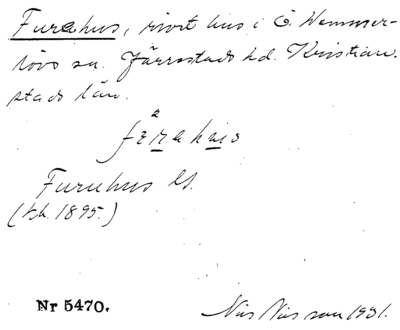 Furahus, rivet hus i Ö. Wemmer-
lövs sn. Järrestads hd. Kristian-
stads län.
Furuhus Gs.
(1895.)
Nr 5470.
Nils Nilsson 1931.